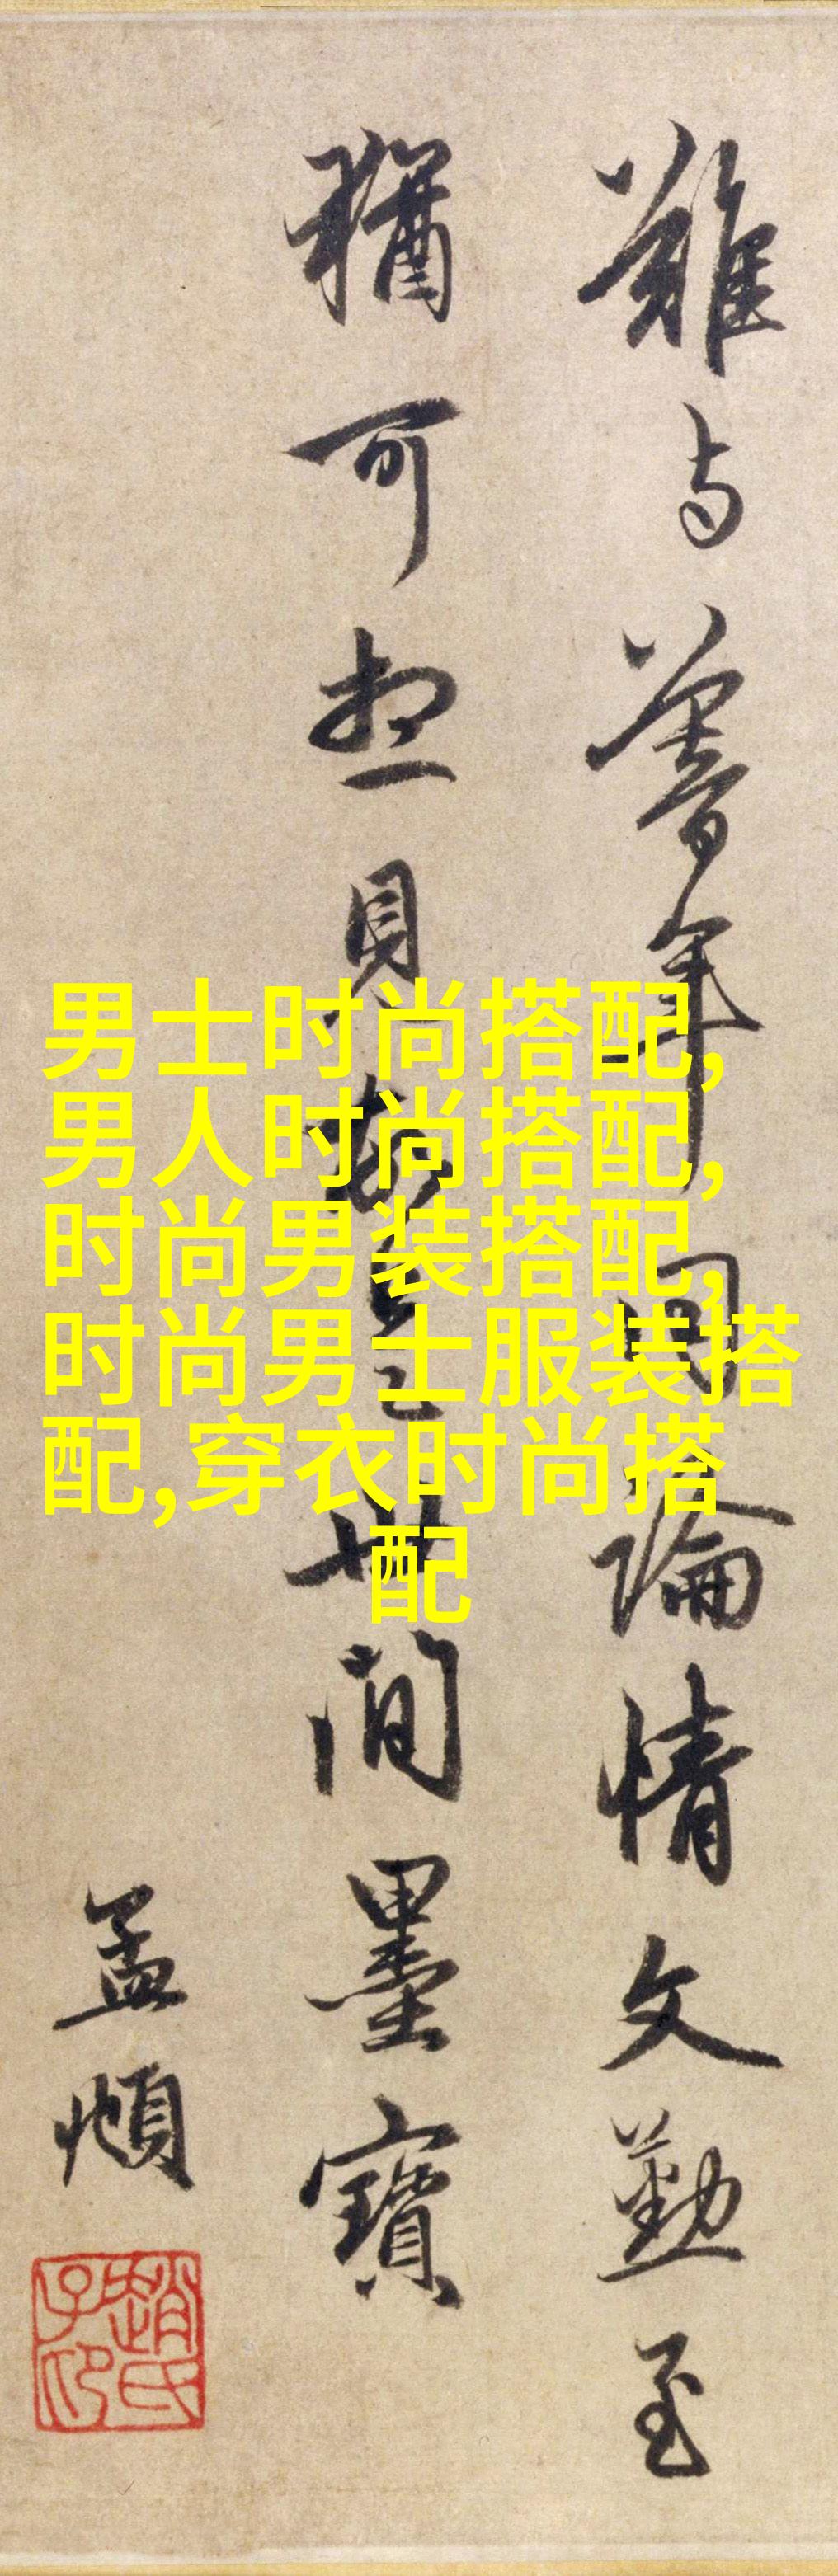 難与暮年同論情文勤至
猶可想見故是世間墨寶
孟頫
趙氏子昂
男士时尚搭配,
男人时尚搭配,
时尚男装搭配,
时尚男士服装搭
配,穿衣时尚搭
配